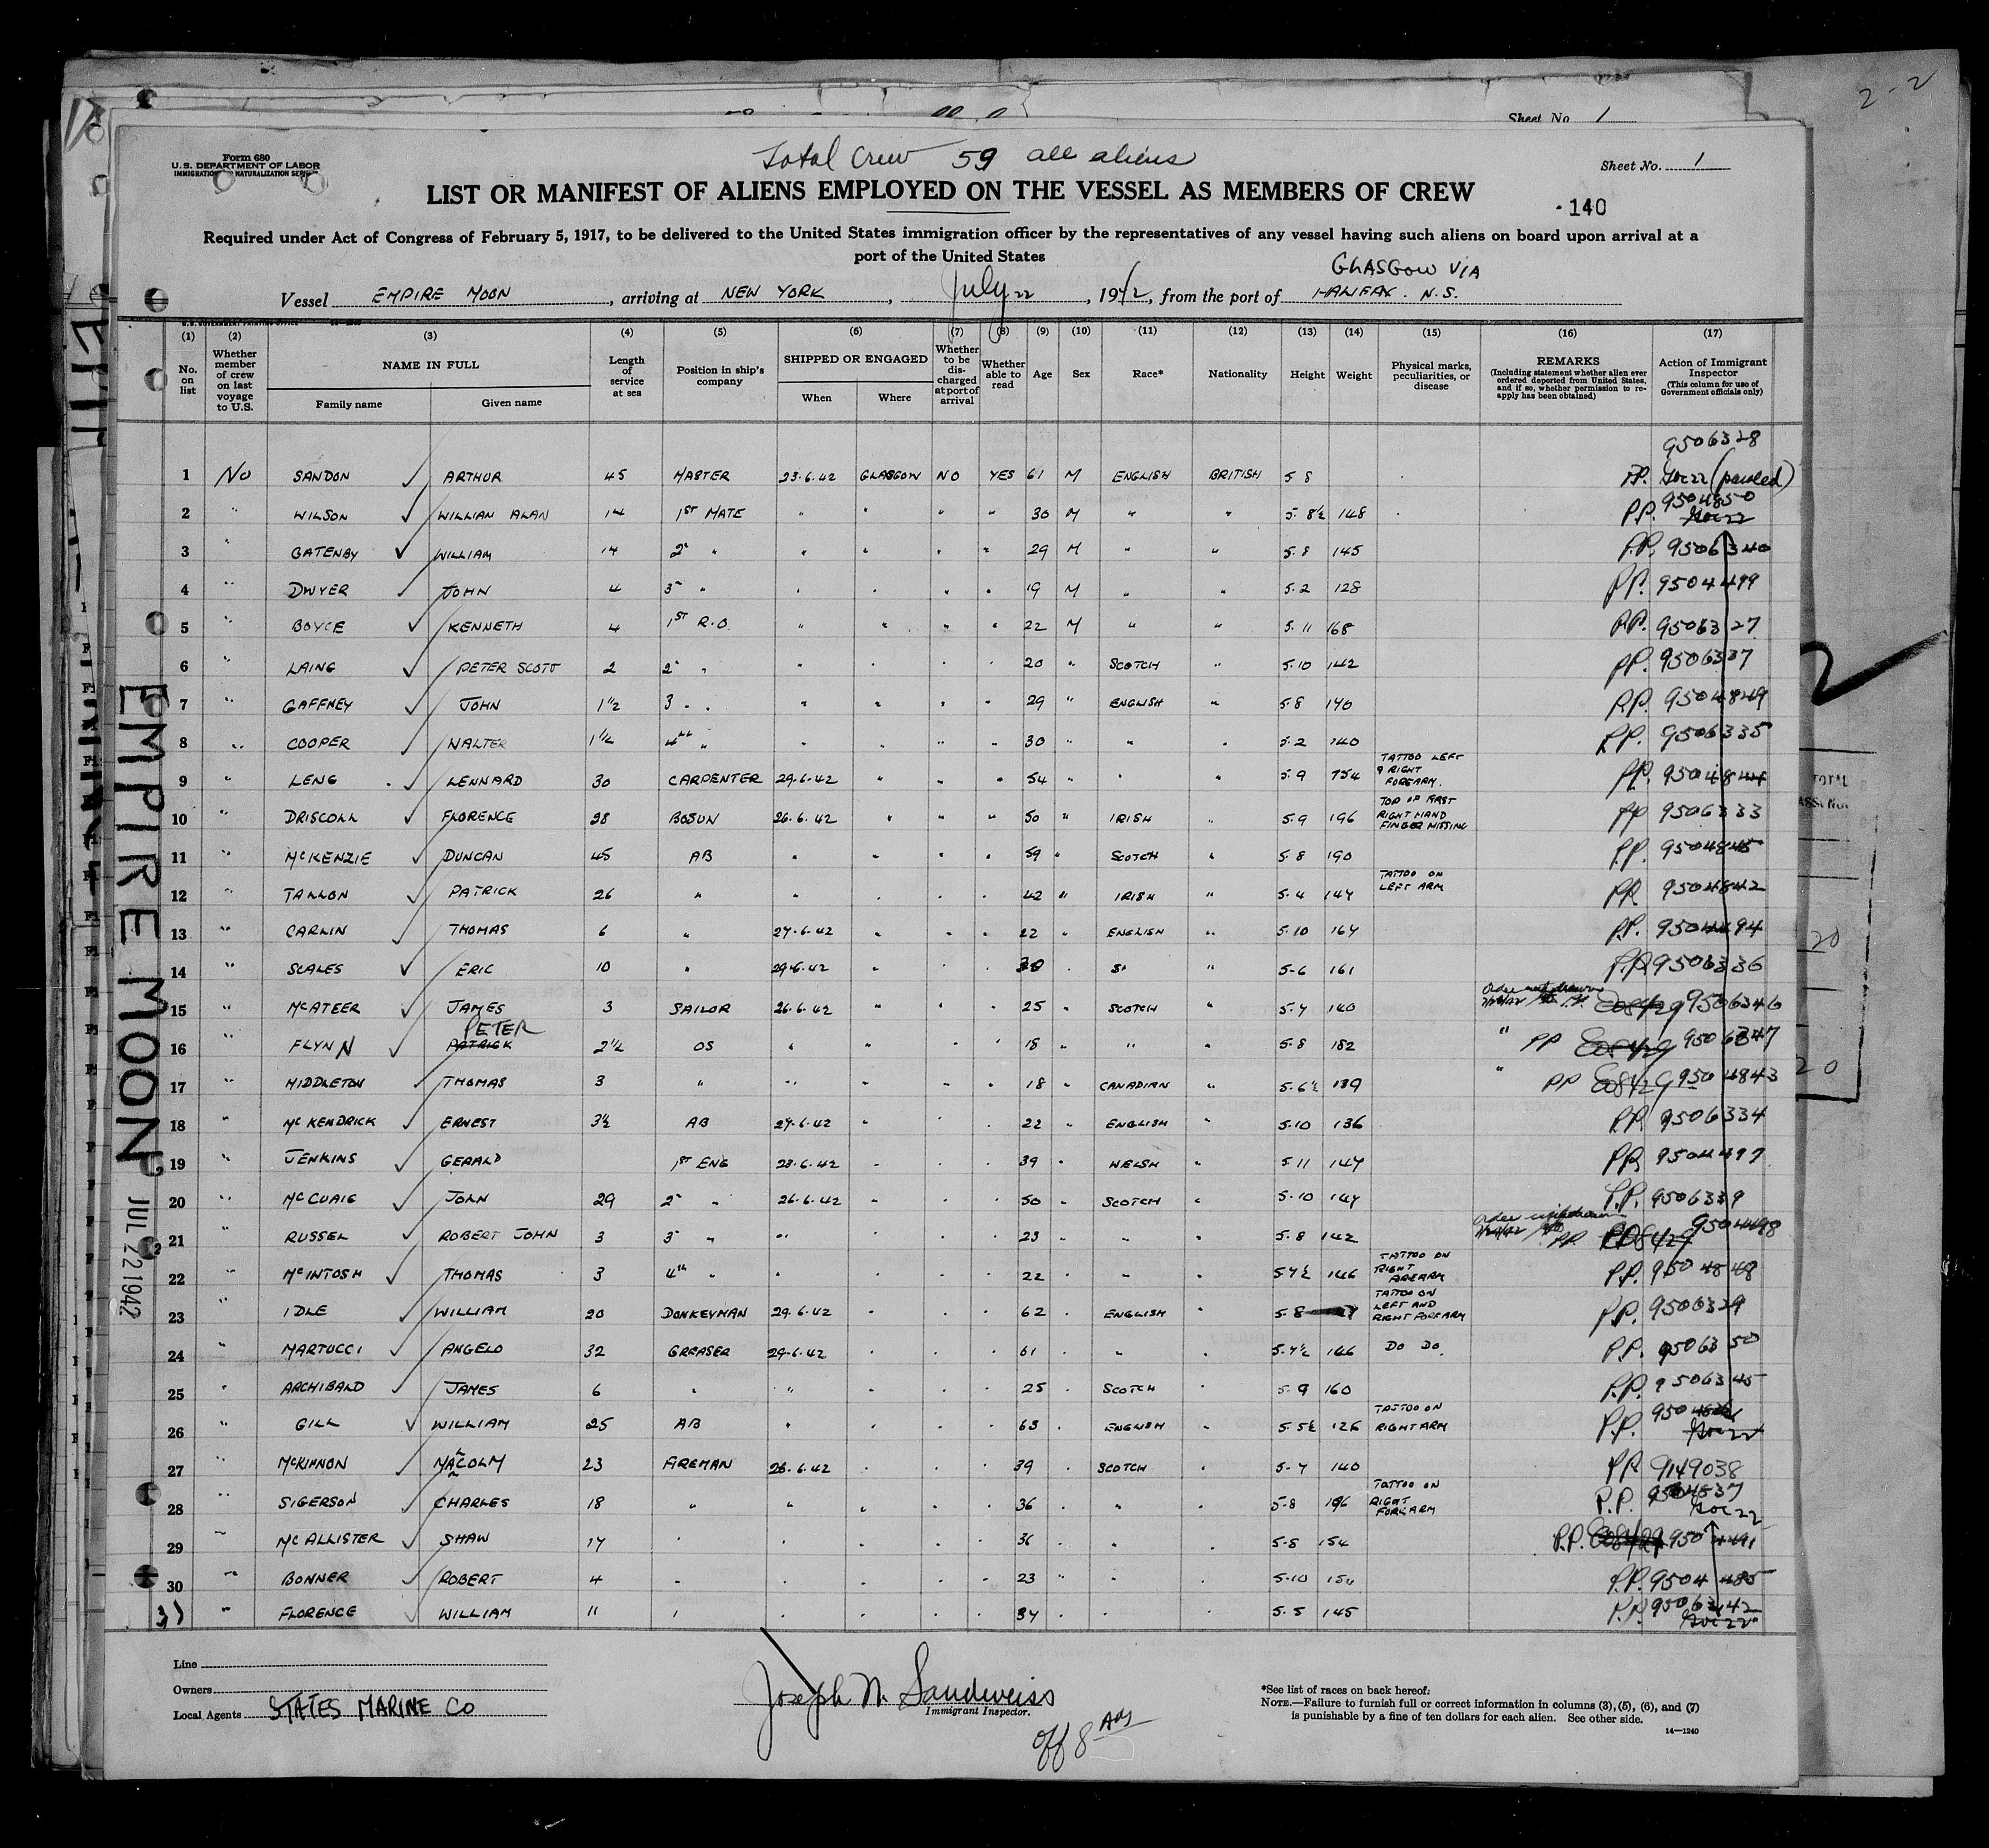 2-2
Sheet No. 1
Form 680
U.S. DEPARTMENT OF LABOR
IMMIGRATION AND NATURALIZATION SERVICE
Total Crew 59 all aliens
Sheet No. 1
LIST OR MANIFEST OF ALIENS EMPLOYED ON THE VESSEL AS MEMBERS OF CREW
140
Required under Act of Congress of February 5, 1917, to be delivered to the United States immigration officer by the representatives of any vessel having such aliens on board upon arrival at a
port of the United States
GLASGOW VIA
Vessel EMPIRE MOON, arriving at NEW YORK, July 22, 1942, from the port of HALIFAX. N.S.
U.S. GOVERNMENT PRINTING OFFICE
(1) (2) (3) (4) (5) (6) (7) (8) (9) (10) (11) (12) (13) (14) (15) (16) (17)
No. on list
Whether member of crew on last voyage to U.S.
NAME IN FULL
Family name
Given name
Length of service at sea
Position in ship's company
SHIPPED OR ENGAGED
When
Where
Whether to be discharged at port of arrival
Whether able to read
Age
Sex
Race*
Nationality
Height
Weight
Physical marks, peculiarities, or disease
REMARKS
(Including statement whether alien ever ordered deported from United States, and if so, whether permission to reapply has been obtained)
Action of Immigrant Inspector
(This column for use of Government officials only)
9506328
1 No SANDON ARTHUR 45 MASTER 23.6.42 GLASGOW NO YES 61 M ENGLISH BRITISH 5 8 P.P.
2 " WILSON WILLIAN ALAN 14 1ST MATE " " " " 30 M " " 5. 8½ 148 P.P. 9504850
3 " GATENBY WILLIAM 14 2" " " " " " 29 M " " 5.8 145 P.P. 9506340
4 " DWYER JOHN 4 3" " " " " " 19 M " " 5.2 128 P.P. 9504499
5 " BOYCE KENNETH 4 1ST R.O. " " " " 22 M " " 5.11 168 P.P. 9506327
6 " LAING PETER SCOTT 2 2" " " " " " 20 " SCOTCH " 5.10 142 P.P. 9506337
7 " GAFFNEY JOHN 1½ 3 " " " " " " 29 " ENGLISH " 5.8 140 P.P. 9504849
8 " COOPER WALTER 1½ 4th " " " " " 30 " " " 5.2 140 P.P. 9506335
9 " LENG LENNARD 30 CARPENTER 29.6.42 " " " 54 " " " 5.9 154 TATTOO LEFT & RIGHT FOREARM. P.P. 9504844
10 " DRISCOLL FLORENCE 38 BOSUN 26.6.42 " " " 50 " IRISH " 5.9 196 TOP OF FIRST RIGHT HAND FINGER MISSING PP 9506333
11 " McKENZIE DUNCAN 45 AB " " " " 59 " SCOTCH " 5.8 190 P.P. 9504845
12 " TALLON PATRICK 26 " " " " " 42 " IRISH " 5.4 147 TATTOO ON LEFT ARM P.P. 9504842
13 " CARLIN THOMAS 6 " 27.6.42 " " " 22 " ENGLISH " 5.10 167 P.P. 9504494
14 " SCALES ERIC 10 " 29.6.42 " " " 30 " " " 5.6 161 P.P. 9506336
15 " McATEER JAMES 3 SAILOR 26.6.42 " " " 25 " SCOTCH " 5.7 140 Order withdrawn 9506346
PETER
16 " FLYNN PATRICK 2½ OS " " " " 18 " " " 5.8 182 " PP 9506347
17 " MIDDLETON THOMAS 3 " " " " " 18 " CANADIAN " 5.6½ 139 " PP 9504843
18 " McKENDRICK ERNEST 3½ AB 27.6.42 " " " 22 " ENGLISH " 5.10 136 P.P. 9506334
19 " JENKINS GERALD 1ST ENG 23.6.42 " " " 39 " WELSH " 5.11 147 P.P. 9504497
20 " McCUAIG JOHN 29 2" " 26.6.42 " " " 50 " SCOTCH " 5.10 147 P.P. 9506339
21 " RUSSEL ROBERT JOHN 3 3" " " " " " 23 " " " 5.8 142 Order withdrawn PP 9504498
22 " McINTOSH THOMAS 3 4th " " " " " 22 " " " 5.7½ 146 TATTOO ON RIGHT FOREARM P.P. 9504848
23 " IDLE WILLIAM 20 DONKEYMAN 29.6.42 " " " 62 " ENGLISH " 5.8 TATTOO ON LEFT AND RIGHT FOREARM P.P. 9506329
24 " MARTUCCI ANGELO 32 GREASER 29.6.42 " " " 61 " " " 5.7½ 146 DO DO. P.P. 9506350
25 " ARCHIBALD JAMES 6 " " " " " 25 " SCOTCH " 5.9 160 P.P. 9506345
26 " GILL WILLIAM 25 AB " " " " 63 " ENGLISH " 5.5½ 126 TATTOO ON RIGHT ARM P.P.
27 " McKINNON MALCOLM 23 FIREMAN 26.6.42 " " " 39 " SCOTCH " 5.7 140 P.P. 9149038
28 " SIGERSON CHARLES 18 " " " " " 36 " " " 5.8 196 TATTOO ON RIGHT FOREARM P.P. 9504837
29 " McALLISTER SHAW 17 " " " " " 36 " " " 5.8 154 P.P. 9504491
30 " BONNER ROBERT 4 " " " " " 23 " " " 5.10 154 P.P. 9504485
31 " FLORENCE WILLIAM 11 " " " " " 37 " " " 5.5 145 P.P. 9506342
EMPIRE MOON
JUL 22 1942
Line
Owners
Local Agents STATES MARINE CO
Joseph N. Sandweiss
Immigrant Inspector.
off 8 AM
*See list of races on back hereof.
NOTE.—Failure to furnish full or correct information in columns (3), (5), (6), and (7)
is punishable by a fine of ten dollars for each alien. See other side.
14—1240
TOTAL
20
20